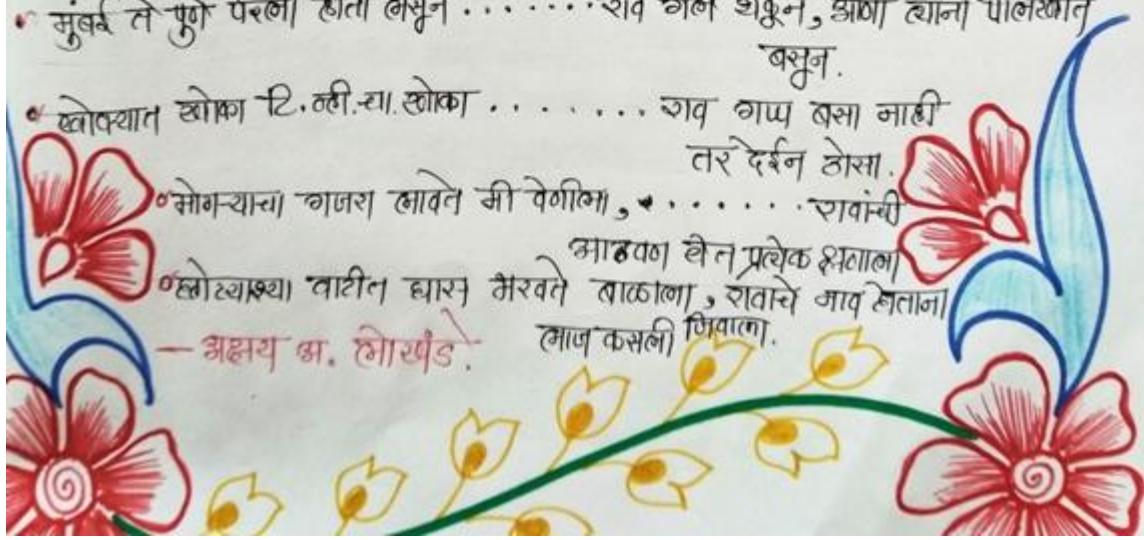 • मुंबई ते पुणे पेरला होता लसून . . . . . . . . राव गेले थकून, आणा त्यांना पालखीत
बसून.
• खोक्यात खोका टि.व्ही.चा खोका . . . . . . . . राव गप्प बसा नाही
तर देईन ठोसा.
• मोगऱ्याचा गजरा लावते मी वेणीला, . . . . . . . रावांची
आठवण येते प्रत्येक क्षणाला
• छोट्याश्या वाटीत घास भरवते बाळाला, रावांचे नाव घेताना
लाज कसली जिवाला.
— अक्षय अ. लोखंडे.